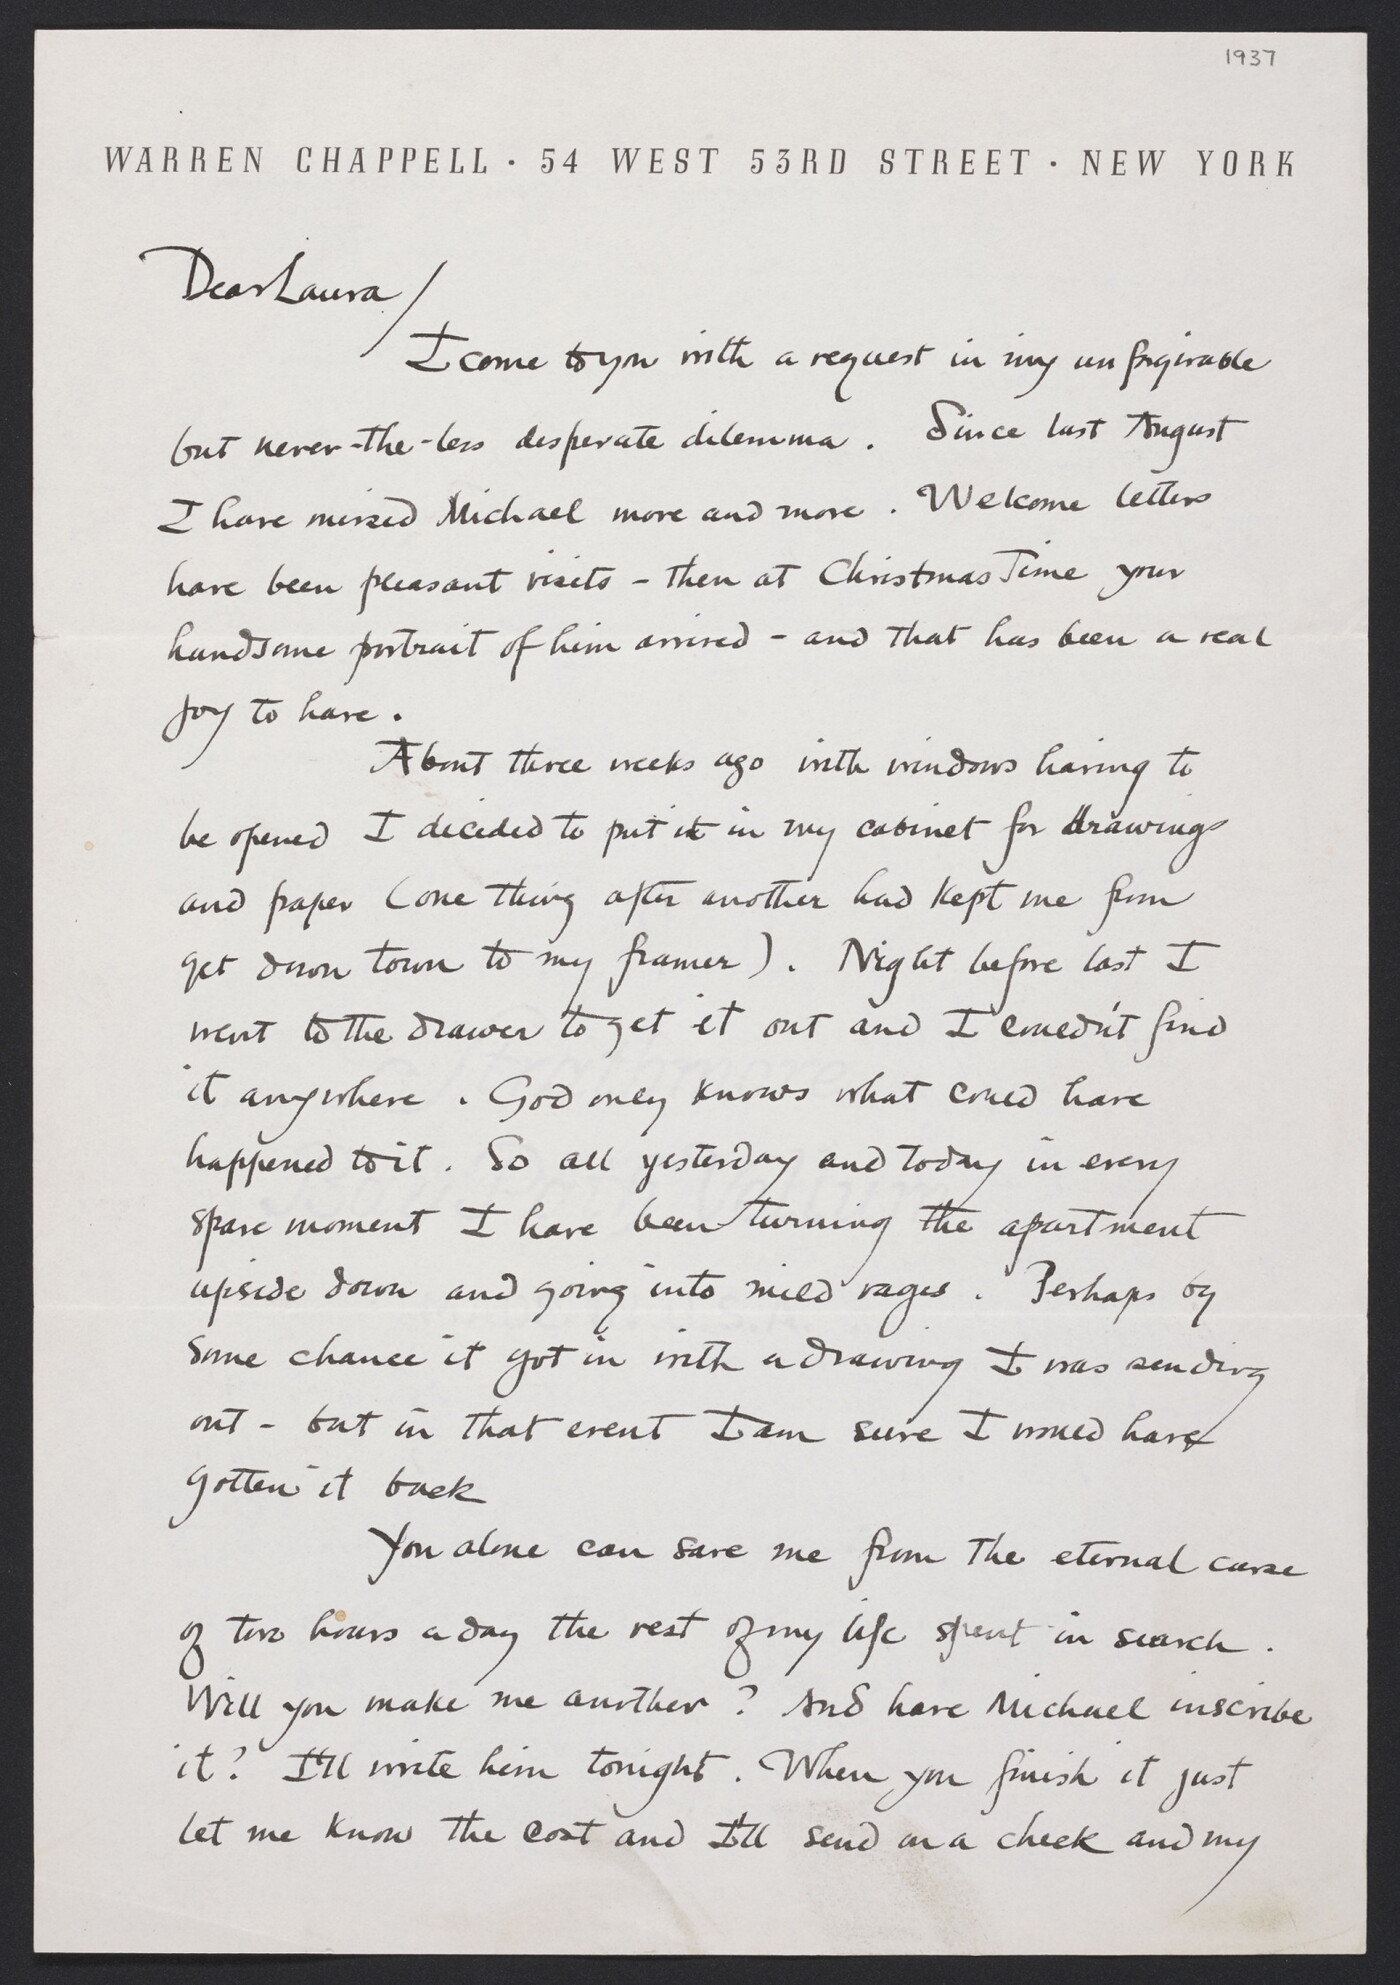 1937
WARREN CHAPPELL · 54 WEST 53RD STREET · NEW YORK
Dear Laura/
I come to you with a request in my unforgivable
but never-the-less desperate dilemma. Since last August
I have missed Michael more and more. Welcome letters
have been pleasant visits - then at Christmas Time your
handsome portrait of him arrived - and that has been a real
joy to have.
About three weeks ago with windows having to
be opened I decided to put it in my cabinet for drawings
and paper (one thing after another had kept me from
get down town to my framer). Night before last I
went to the drawer to get it out and I couldn't find
it anywhere. God only knows what could have
happened to it. So all yesterday and today in every
spare moment I have been turning the apartment
upside down and going into mild rages. Perhaps by
some chance it got in with a drawing I was sending
out - but in that event I am sure I would have
gotten it back
You alone can save me from the eternal curse
of two hours a day the rest of my life spent in search.
Will you make me another? And have Michael inscribe
it? I'll write him tonight. When you finish it just
let me know the cost and I'll send on a check and my